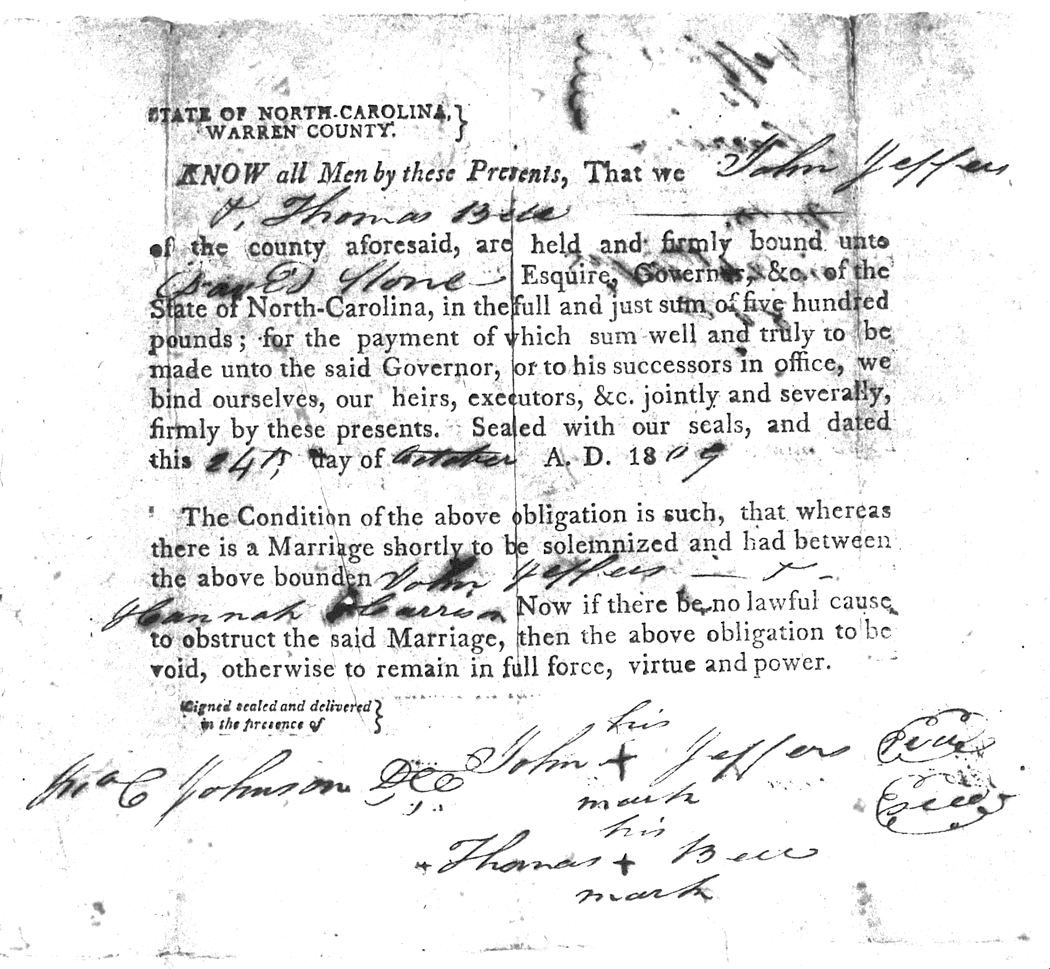 STATE OF NORTH-CAROLINA,}
WARREN COUNTY.
KNOW all Men by these Presents, That we John Jeffers
& Thomas Bell
of the county aforesaid, are held and firmly bound unto
David Stone Esquire, Governor, &c. of the
State of North-Carolina, in the full and just sum of five hundred
pounds; for the payment of which sum well and truly to be
made unto the said Governor, or to his successors in office, we
bind ourselves, our heirs, executors, &c. jointly and severally,
firmly by these presents. Sealed with our seals, and dated
this 24th day of October A. D. 1809
The Condition of the above obligation is such, that whereas
there is a Marriage shortly to be solemnized and had between
the above bounden John Jeffers — & —
Hannah Harrison Now if there be no lawful cause
to obstruct the said Marriage, then the above obligation to be
void, otherwise to remain in full force, virtue and power.
Signed sealed and delivered}
in the presence of
his
John + Jeffers Seal
Johnson
mark Seal
his
Thomas + Bell
mark